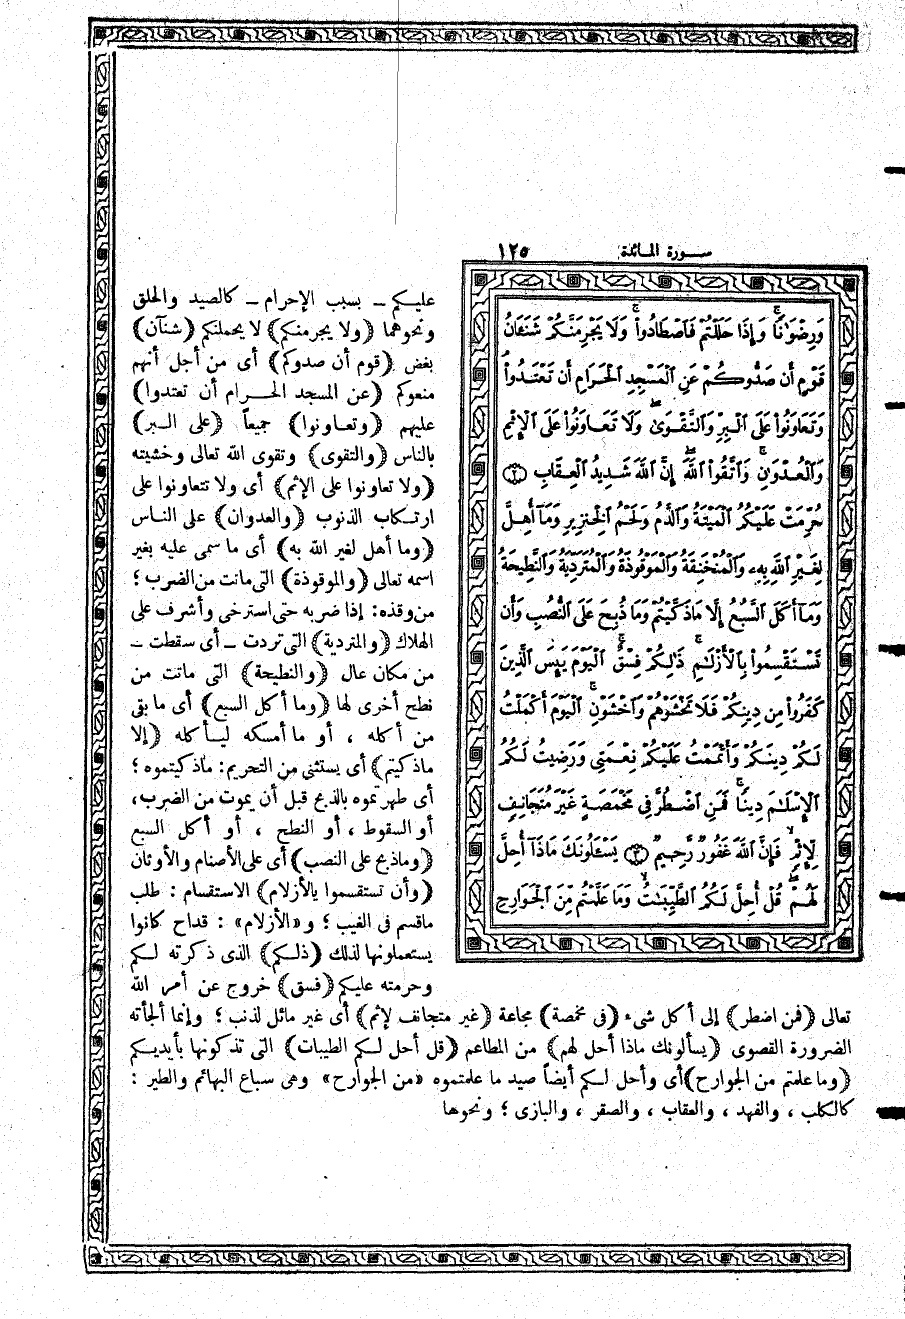 سورة المائدة ١٢٥
وَرِضْوَٰنًا ۚ وَإِذَا حَلَلْتُمْ فَٱصْطَادُوا۟ ۚ وَلَا يَجْرِمَنَّكُمْ شَنَـَٔانُ
قَوْمٍ أَن صَدُّوكُمْ عَنِ ٱلْمَسْجِدِ ٱلْحَرَامِ أَن تَعْتَدُوا۟ ۘ
وَتَعَاوَنُوا۟ عَلَى ٱلْبِرِّ وَٱلتَّقْوَىٰ ۖ وَلَا تَعَاوَنُوا۟ عَلَى ٱلْإِثْمِ
وَٱلْعُدْوَٰنِ ۚ وَٱتَّقُوا۟ ٱللَّهَ ۖ إِنَّ ٱللَّهَ شَدِيدُ ٱلْعِقَابِ ﴿٢﴾
حُرِّمَتْ عَلَيْكُمُ ٱلْمَيْتَةُ وَٱلدَّمُ وَلَحْمُ ٱلْخِنزِيرِ وَمَآ أُهِلَّ
لِغَيْرِ ٱللَّهِ بِهِۦ وَٱلْمُنْخَنِقَةُ وَٱلْمَوْقُوذَةُ وَٱلْمُتَرَدِّيَةُ وَٱلنَّطِيحَةُ
وَمَآ أَكَلَ ٱلسَّبُعُ إِلَّا مَا ذَكَّيْتُمْ وَمَا ذُبِحَ عَلَى ٱلنُّصُبِ وَأَن
تَسْتَقْسِمُوا۟ بِٱلْأَزْلَٰمِ ۚ ذَٰلِكُمْ فِسْقٌ ۗ ٱلْيَوْمَ يَئِسَ ٱلَّذِينَ
كَفَرُوا۟ مِن دِينِكُمْ فَلَا تَخْشَوْهُمْ وَٱخْشَوْنِ ۚ ٱلْيَوْمَ أَكْمَلْتُ
لَكُمْ دِينَكُمْ وَأَتْمَمْتُ عَلَيْكُمْ نِعْمَتِى وَرَضِيتُ لَكُمُ
ٱلْإِسْلَٰمَ دِينًا ۚ فَمَنِ ٱضْطُرَّ فِى مَخْمَصَةٍ غَيْرَ مُتَجَانِفٍ
لِّإِثْمٍ ۙ فَإِنَّ ٱللَّهَ غَفُورٌ رَّحِيمٌ ﴿٣﴾ يَسْـَٔلُونَكَ مَاذَآ أُحِلَّ
لَهُمْ ۖ قُلْ أُحِلَّ لَكُمُ ٱلطَّيِّبَٰتُ ۙ وَمَا عَلَّمْتُم مِّنَ ٱلْجَوَارِحِ
عليكم ــ بسبب الإحرام ــ كالصيد والحلق
ونحوهما (ولا يجرمنكم) لا يحملنكم (شنآن)
بغض (قوم أن صدوكم) أى من أجل أنهم
منعوكم (عن المسجد الحرام أن تعتدوا)
عليهم (وتعاونوا) جميعاً (على البر)
بالناس (والتقوى) وتقوى الله تعالى وخشيته
(ولا تعاونوا على الإثم) أى ولا تتعاونوا على
ارتكاب الذنوب (والعدوان) على الناس
(وما أهل لغير الله به) أى ما سمى عليه بغير
اسمه تعالى (والموقوذة) التى ماتت من الضرب؛
من وقذه: إذا ضربه حتى استرخى وأشرف على
الهلاك (والمتردية) التى تردت ــ أى سقطت ــ
من مكان عال (والنطيحة) التى ماتت من
نطح أخرى لها (وما أكل السبع) أى ما بقى
من أكله ، أو ما أمسكه ليأكله (إلا
ما ذكيتم) أى يستثنى من التحريم: ما ذكيتموه؛
أى طهرتموه بالذبح قبل أن يموت من الضرب،
أو السقوط ، أو النطح ، أو أكل السبع
(وما ذبح على النصب) أى على الأصنام والأوثان
(وأن تستقسموا بالأزلام) الاستقسام : طلب
ما قسم فى الغيب؛ و«الأزلام» : قداح كانوا
يستعملونها لذلك (ذلكم) الذى ذكرته لكم
وحرمته عليكم (فسق) خروج عن أمر الله
تعالى (فمن اضطر) إلى أكل شىء (فى مخمصة) مجاعة (غير متجانف لإثم) أى غير مائل لذنب؛ وإنما ألجأته
الضرورة القصوى (يسألونك ماذا أحل لهم) من المطاعم (قل أحل لكم الطيبات) التى تذكونها بأيديكم
(وما علمتم من الجوارح) أى وأحل لكم أيضاً صيد ما علمتموه «من الجوارح» وهى سباع البهائم والطير :
كالكلب ، والفهد ، والعقاب ، والصقر ، والبازى؛ ونحوها